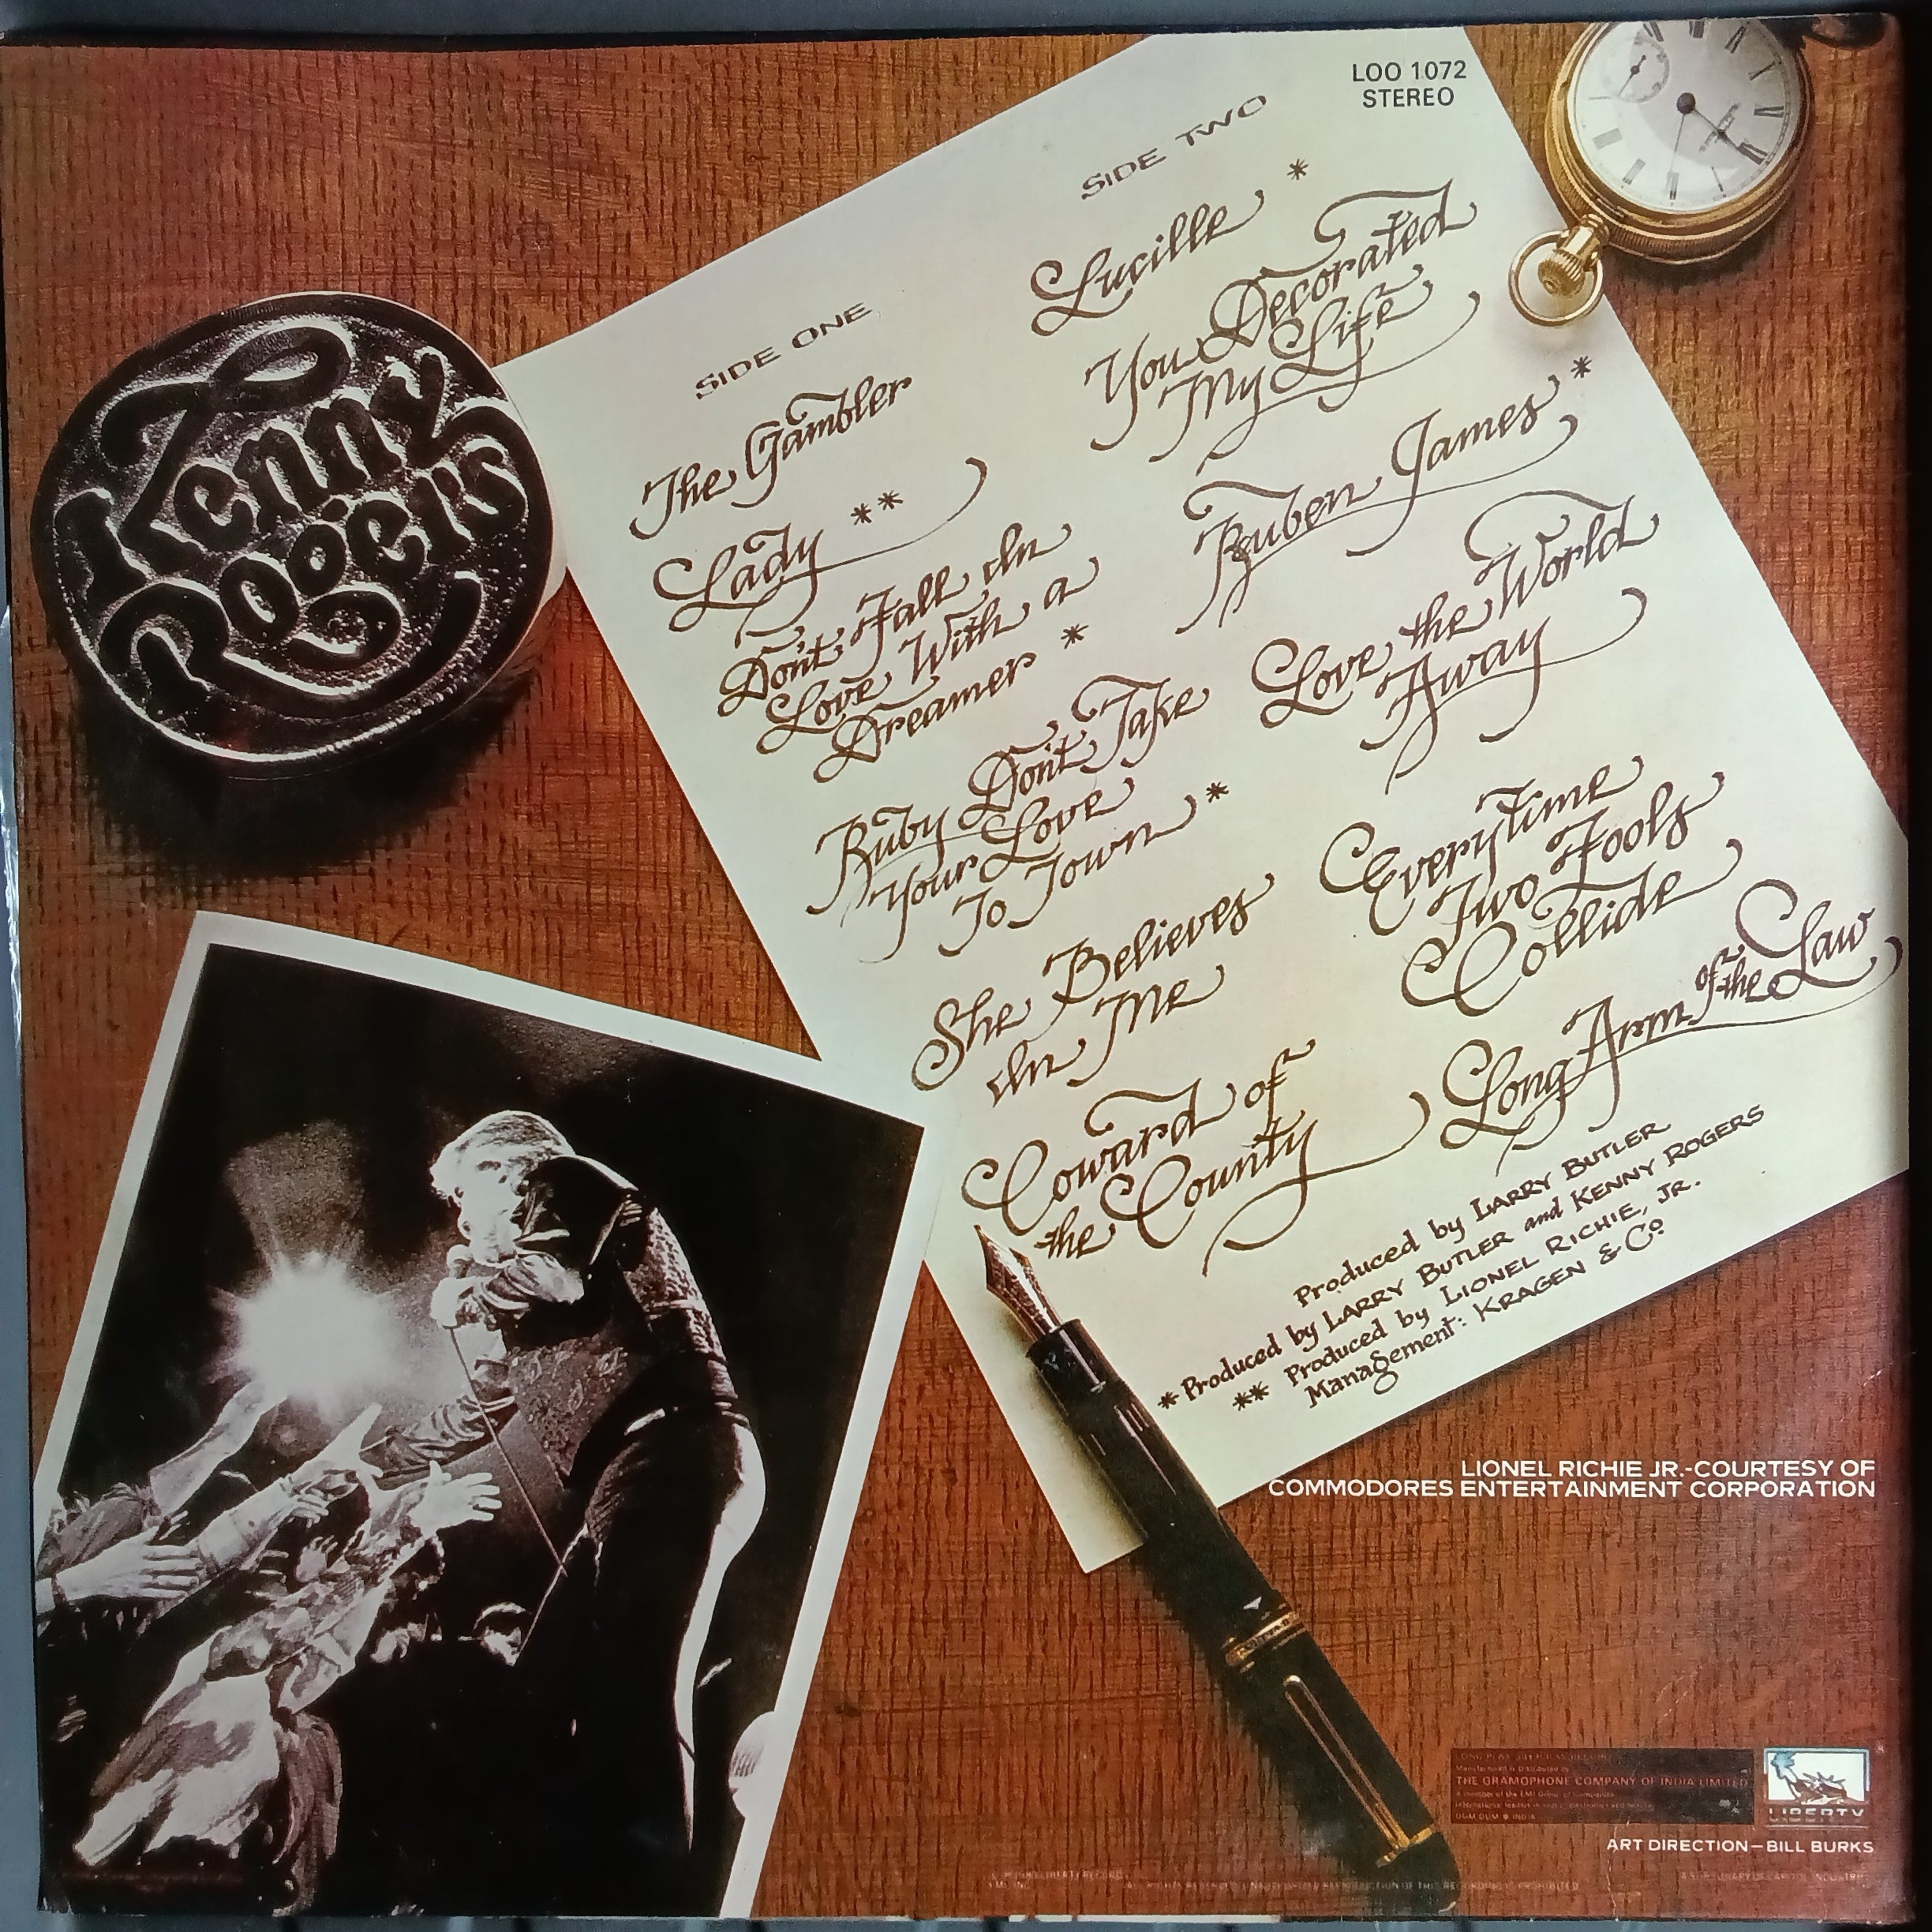 LOO 1072
STEREO
Kenny
Rogers
SIDE ONE
The Gambler
Lady **
Don't Fall In
Love With a
Dreamer *
Ruby Don't Take
Your Love
To Town *
She Believes
In Me
Coward of
the County
SIDE TWO
Lucille *
You Decorated
My Life
Ruben James *
Love the World
Away
Everytime
Two Fools
Collide
Long Arm of the Law
Produced by LARRY BUTLER
* Produced by LARRY BUTLER and KENNY ROGERS
** Produced by LIONEL RICHIE, JR.
Management: KRAGEN & Co
LIONEL RICHIE JR.-COURTESY OF
COMMODORES ENTERTAINMENT CORPORATION
Manufactured & Distributed by
THE GRAMOPHONE COMPANY OF INDIA LIMITED
A member of the EMI Group of Companies
DUM DUM INDIA
LIBERTY
ART DIRECTION—BILL BURKS